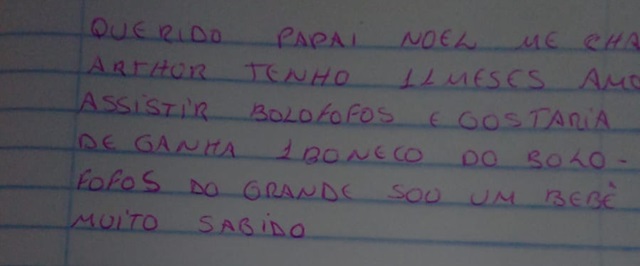 QUERIDO PAPAI NOEL ME CHA
ARTHOR TENHO 11 MESES AMO
ASSISTIR BOLOFOFOS E GOSTARIA
DE GANHA 1 BONECO DO BOLO-
FOFOS DO GRANDE SOU UM BEBÊ
MUITO SABIDO